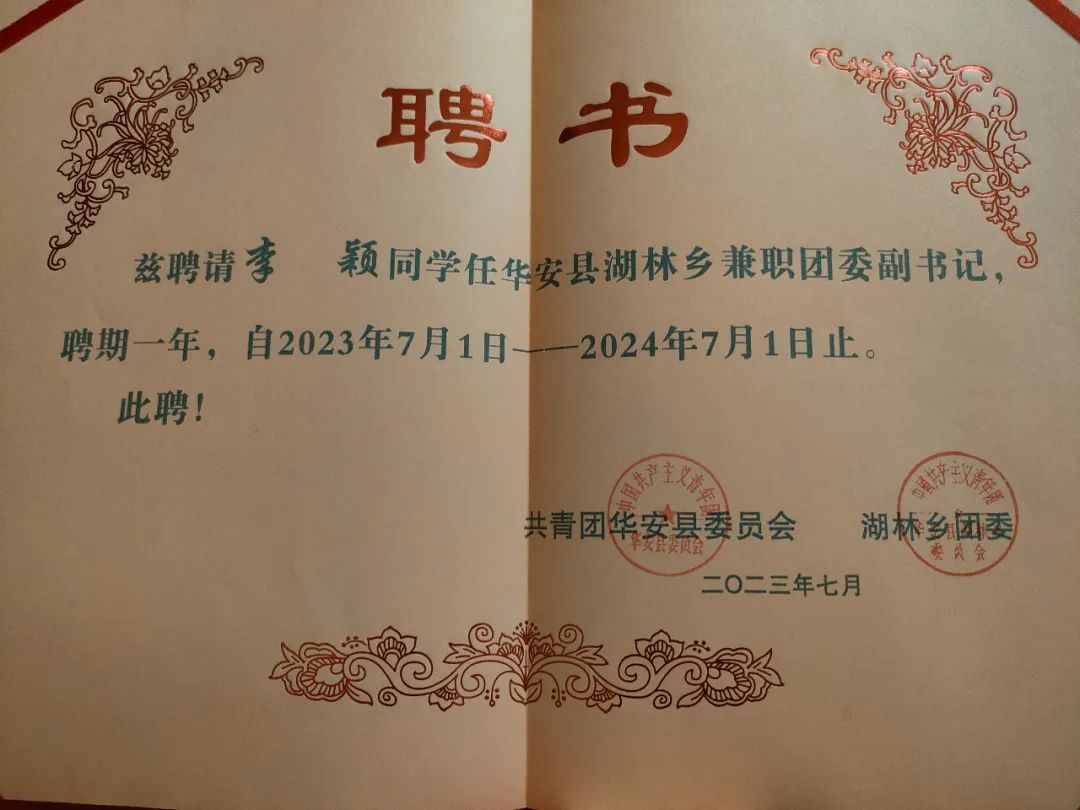 聘书
兹聘请李 颖同学任华安县湖林乡兼职团委副书记，
聘期一年，自2023年7月1日——2024年7月1日止。
此聘！
中国共产主义青年团
华安县委员会
中国共产主义青年团
委员会
共青团华安县委员会 湖林乡团委
二〇二三年七月